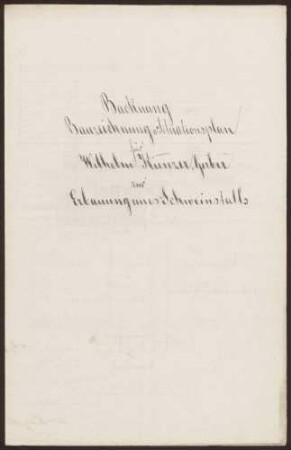 Backnang
Bauzeichnung & Situationsplan
für
Wilhelm Kunzer, Gerber
zur
Erbauung eines Schweinstalls